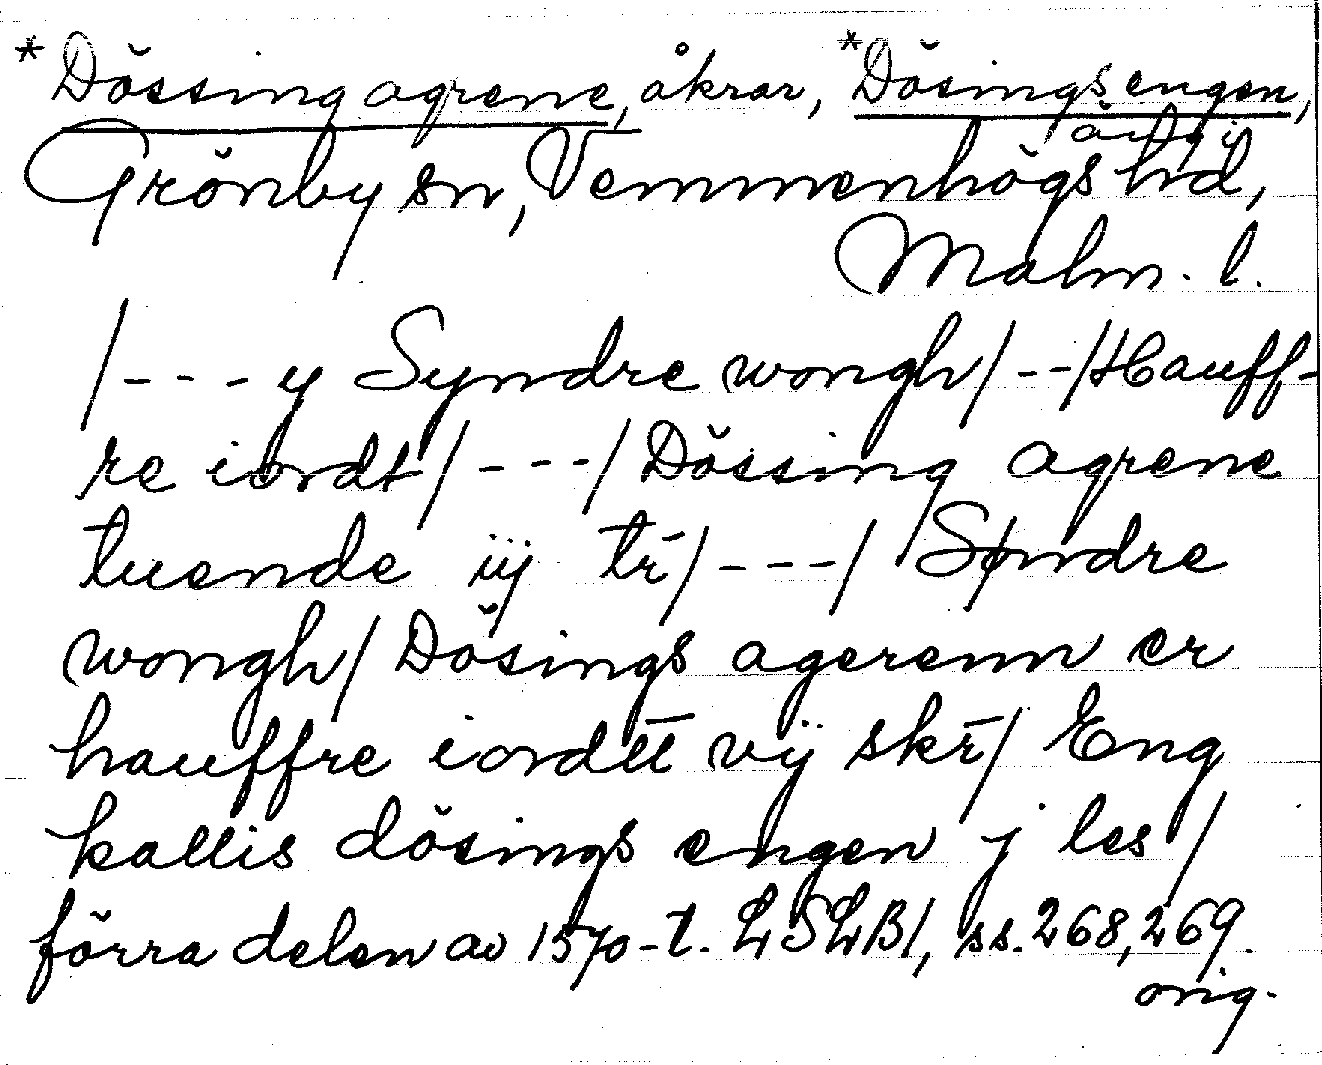 *Dŏssing agrene, åkrar, *Dŏsings engen,
äng i
Grönby sn, Vemmenhögs hd,
Malm. l.
/- - - y Syndre wongh/ - -/Hauff-
re iordt/ - - -/ Dŏssing agrene
tuende iij tr̄/ - - -/ Søndre
wongh/ Dŏsings agerenn er
hauffre iordtt̄ vij skr̄/ Eng
kallis dŏsings engen j les/
förra delen av 1570-t. LSLB1, ss. 268, 269.
orig.